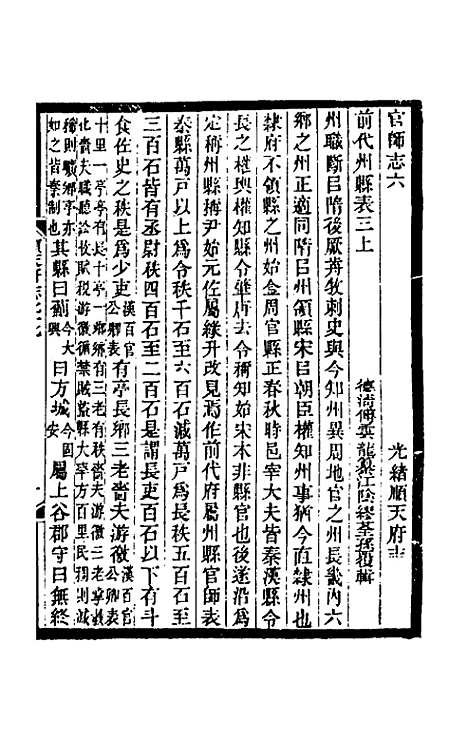 官師志六　光緒順天府志
前代州縣表三上　德清傅雲龍纂江陰繆荃孫覆輯
州職斷自隋後厥前牧刺史與今知州異周地官之州長畿內六
鄉之州正適同隋自州領縣宋自朝臣權知州事猶今直隸州也
隸府不領縣之州始金周官縣正春秋時邑宰大夫皆秦漢縣令
長之權輿權知縣令肇唐去令稱知始宋本非縣官也後遂沿為
定稱州縣稱尹始元佐屬緣升改見焉作前代府屬州縣官師表
秦縣萬戶以上為令秩千石至六百石減萬戶為長秩五百石至
三百石皆有丞尉秩四百石至二百石是謂長吏百石以下有斗
食佐史之秩是為少吏漢百官公卿表有亭長鄉三老嗇夫游徼漢百官公卿表
十里一亭亭有長十亭一鄉鄉有三老有秩嗇夫游徼三老掌教
化嗇夫職聽訟收賦税游徼徼循禁賊盜縣大率方百里民稠則減
稀則曠鄉亭亦如之皆秦制也其縣曰薊今大興曰方城今固安屬上谷郡守曰無終